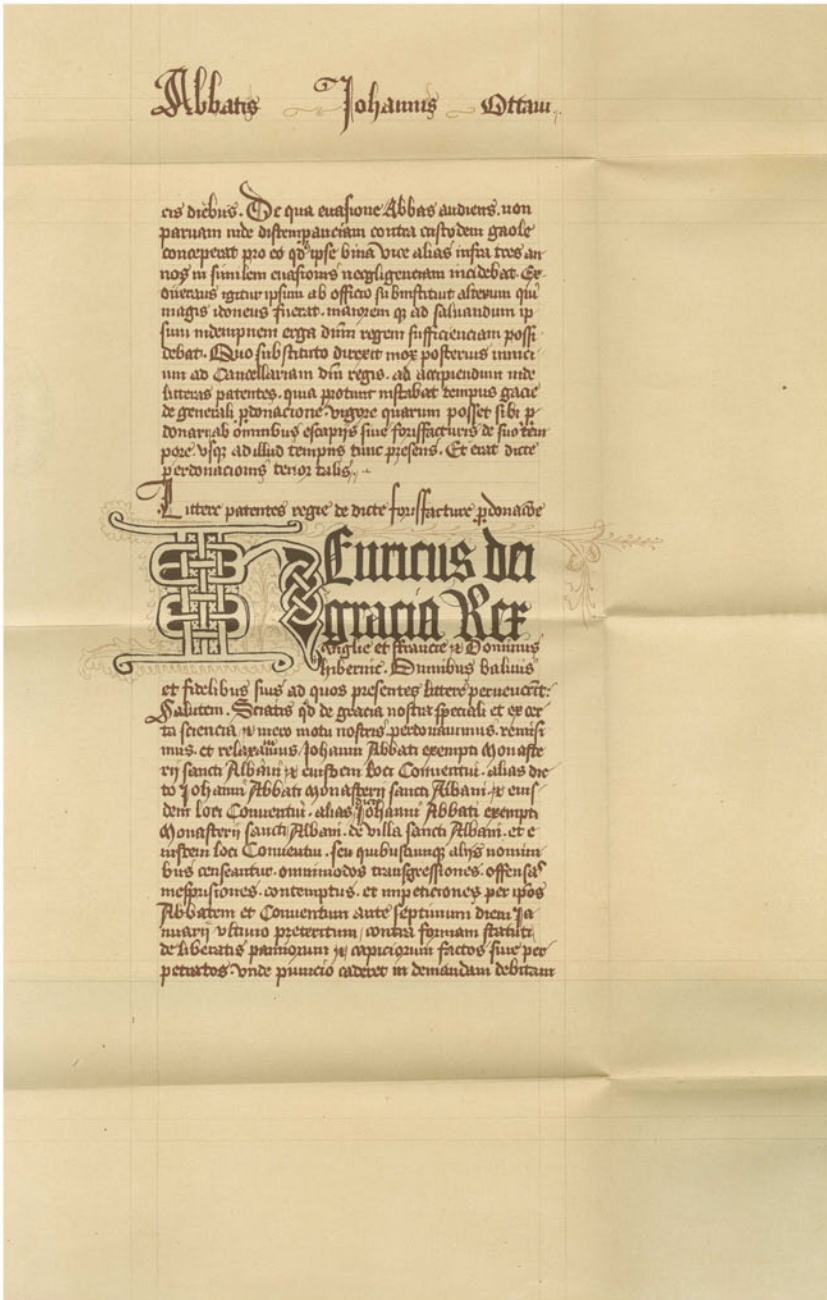 Abbatis Johannis Octaui
cis diebus. De qua euasione Abbas audiens. non
paruam inde distempanciam contra custodem gaole
conceperat pro eo qd ipse bina vice alias infra tres an
nos in similem euasionis negligenciam incidebat. Ex
onerans igitur ipsum ab officio substituit alterum qui
magis idoneus fuerat. maiorem q ad saluandum ip
sum indempnem erga dnm regem sufficienciam possi
debat. Quo substituto direxit mox posterius
um ad Cancellariam dni regis. ad accipiendum inde
litteras patentes. quia protunc instabat tempus gacie
de generali pdonacione. vigore quarum posset sibi p
donari ab omnibus escapijs siue forisfacturis de suo tem
pore. vsq ad illud tempus tunc presens. Et erat dicte
perdonacionis tenor talis.
Littere patentes regie de dicte forisfacture pdonacoe
Henricus dei
gracia Rex
Anglie et Francie & Dominus
hibernie. Omnibus baliuis
et fidelibus suis ad quos presentes littere peruenerit:
Salutem. Sciatis qd de gracia nostra speciali et ex cer
ta sciencia & mero motu nostris. perdonauimus. remisi
mus. et relaxauimus Johanni Abbati exempti Monaste
rij sancti Albani & eiusdem loci Conuentui. alias dic
to Johanni Abbati Monasterij sancti Albani. & eius
dem loci Conuentui. alias Johanni Abbati exempti
Monasterij sancti Albani. de villa sancti Albani. et e
iusdem loci Conuentui. seu quibuscunq alijs nomini
bus censeantur. omnimodos transgressiones. offensas
mesprisiones. contemptus. et impeticiones per ipos
Abbatem et Conuentum ante septimum diem Ja
nuarij vltimo preteritum, contra formam statuti
de liberatis pannorum & capiciorum factos siue per
petratos. vnde punicio caderet in demandam debitam